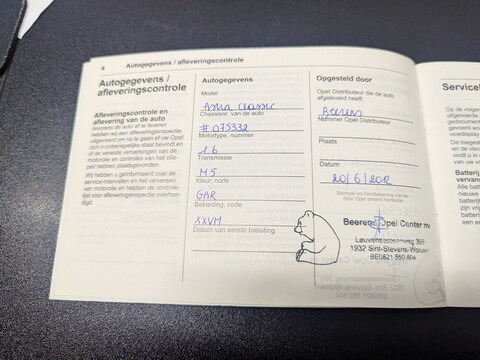 4
Autogegevens / afleveringscontrole
Autogegevens /
afleveringscontrole
Afleveringscontrole en
aflevering van de auto
Alvorens de auto af te leveren
hebben wij een afleveringsinspectie
uitgevoerd om na te gaan of uw Opel
zich in onberispelijke staat bevindt en
of de vereiste verversingen van de
motorolie en controles van het olie-
peil hebben plaatsgevonden.
Wij hebben u geïnformeerd over de
service-intervallen en het verversen
van motorolie en hebben de controle-
lijst voor afleveringsinspectie overhan-
digd
Autogegevens
Model
Astra Classic
Chassisnr. van de auto
# 075332
Motortype, nummer
1.6
Transmissie
M5
Kleur, code
GAR
Bekleding, code
XXVM
Datum van eerste toelating
Opgesteld door
Opel Distributeur die de auto
afgeleverd heeft
Beerens
Nummer Opel Distributeur
Plaats
Datum
20/6/202
Stempel en handtekening van de
door Opel erkend hersteller
Beerens Opel Center
Leuvensesteenweg 365
1932 Sint-Stevens-Woluwe
BE0821.550.804
Service
Op de